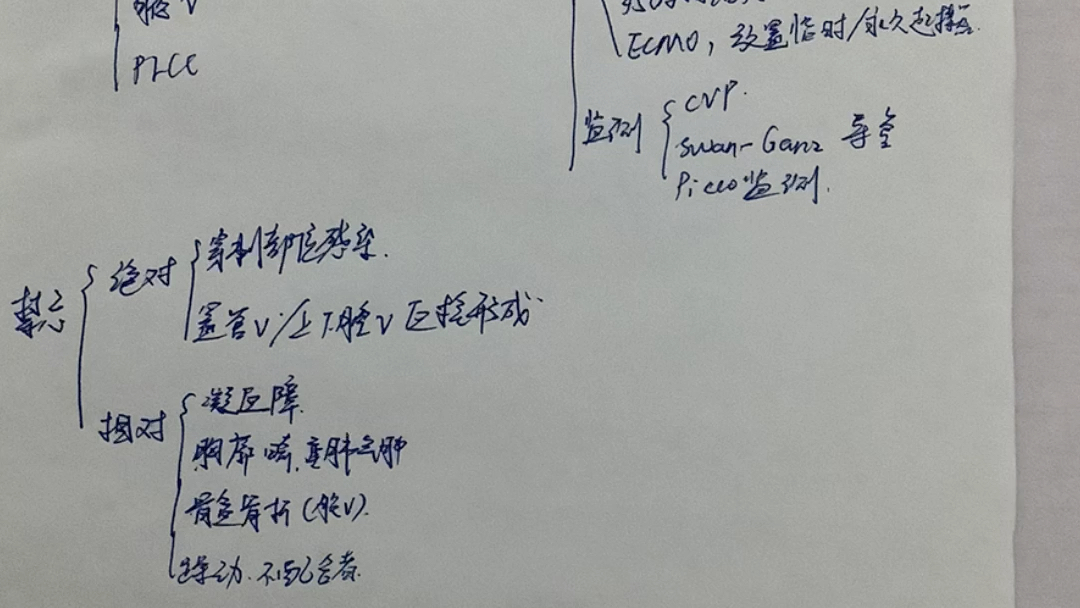 PICC
ECMO，放置临时/永久起搏器.
监测
CVP.
Swan-Ganz 导管
Picco监测.
禁忌
绝对
穿刺部位感染.
置管V/上下腔V 血栓形成.
相对
凝血障.
胸廓畸.重肺气肿
骨盆骨折(股V).
躁动.不配合者.